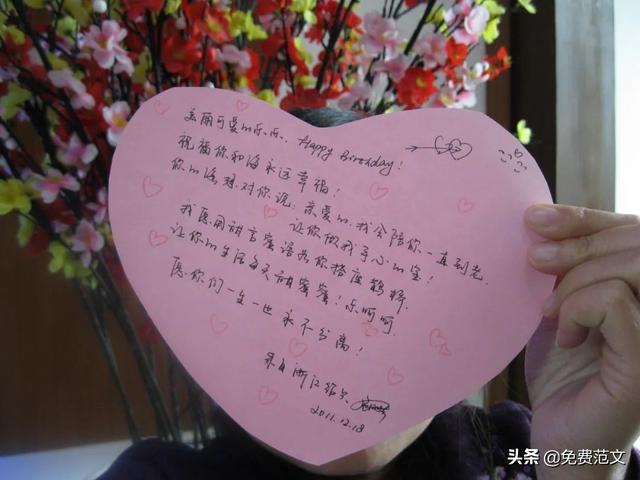 美丽可爱的乐乐、Happy Birthday!
祝福你和海永远幸福!
你的海想对你说:亲爱的,我会陪你一直到老,
让你做我手心的宝!
我愿用甜言蜜语为你搭座鹊桥,
让你的生活每天甜蜜蜜!乐呵呵.
愿你们一生一世永不分离!
来自浙江绍兴
2011.12.18
头条 @免费范文